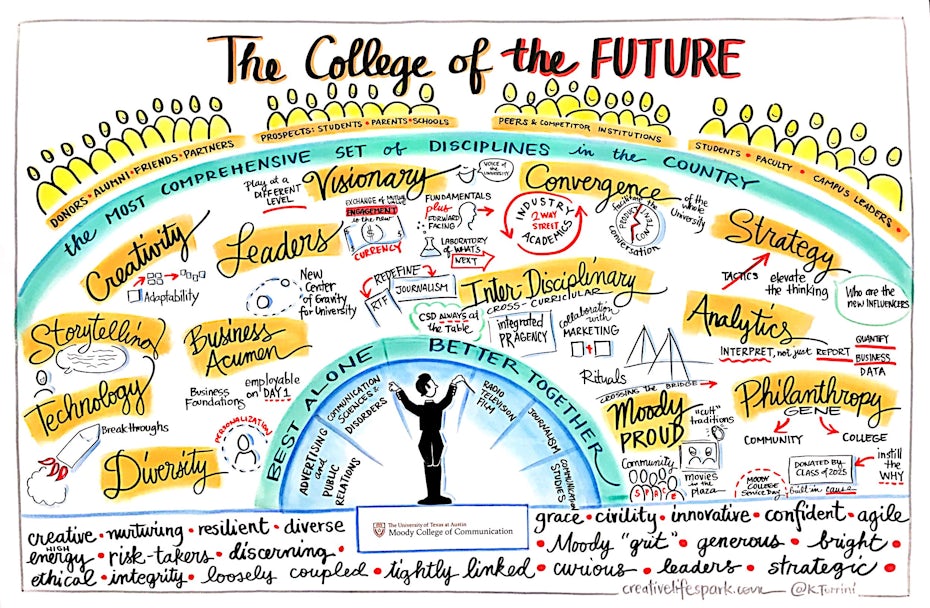 The College of the FUTURE
DONORS • ALUMNI • FRIENDS • PARTNERS
PROSPECTS: STUDENTS • PARENTS • SCHOOLS
PEERS & COMPETITOR INSTITUTIONS
STUDENTS • FACULTY • CAMPUS LEADERS •
the MOST COMPREHENSIVE SET of DISCIPLINES in the COUNTRY
Creativity
Adaptability
Leaders
New
Center
of Gravity
for University
Play at a
DIFFERENT
LEVEL
Visionary
VOICE of
the UNIVERSITY
EXCHANGE of MUTUAL VALUE
ENGAGEMENT
is the new
CURRENCY
FUNDAMENTALS
plus
FORWARD
FACING
LABORATORY
of WHAT'S
NEXT
Convergence
of the
whole
University
INDUSTRY
2 WAY
STREET
ACADEMICS
facilitate the
PRODUCTIVE
CONVENING
conversation
Strategy
TACTICS
elevate
the thinking
Who are the
new INFLUENCERS
REDEFINE
RTF
JOURNALISM
CSD ALWAYS at
the Table
Inter-Disciplinary
CROSS-CURRICULAR
integrated
PR AGENCY
collaboration
with
MARKETING
Analytics
INTERPRET, not just REPORT
QUANTIFY
BUSINESS
DATA
Storytelling
Business
Acumen
Business
Foundations
employable
on DAY 1
Technology
Breakthroughs
PERSONALIZATION
Diversity
BEST ALONE
BETTER TOGETHER
ADVERTISING
and
PUBLIC
RELATIONS
COMMUNICATION
SCIENCES &
DISORDERS
RADIO
TELEVISION
FILM
JOURNALISM
COMMUNICATION
STUDIES
Rituals
CROSSING the BRIDGE
Moody
PROUD
"cult"
traditions
Community
movies
in the
plaza
Philanthropy
GENE
COMMUNITY
COLLEGE
MOODY
COLLEGE
SERVICE DAY
DONATED BY
CLASS of 2025
built-in cause
instill
the
WHY
creative • nurturing • resilient • diverse
HIGH
energy • risk-takers • discerning •
ethical • integrity • loosely coupled • tightly linked • curious • leaders • strategic •
The University of Texas at Austin
Moody College of Communication
grace • civility • innovative • confident • agile
• Moody "grit" • generous • bright •
creativelifespark.com
@K.Torrini